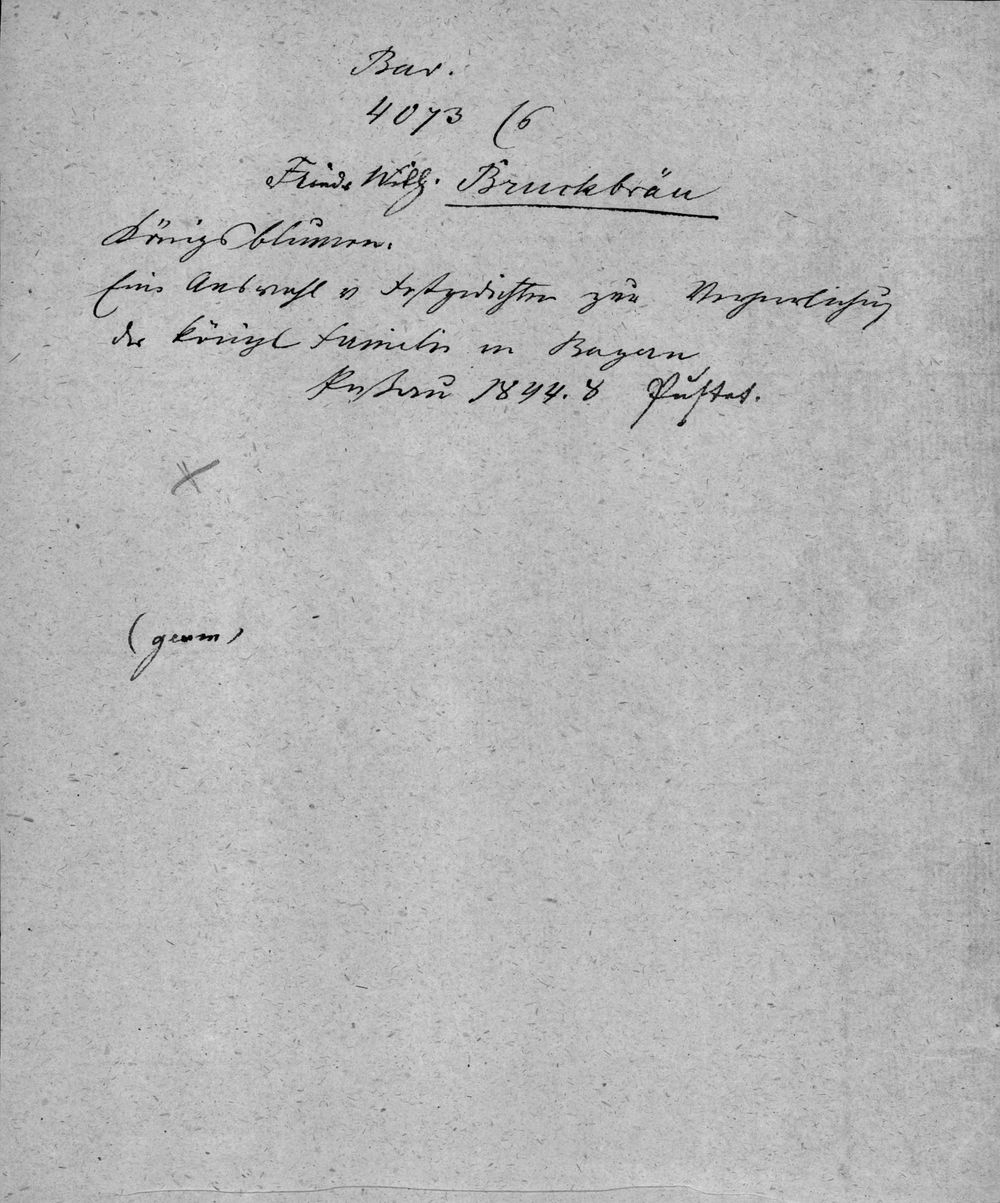 Bav.
4073 (6
Friedr Wilh. Bruckbräu
Königsblumen.
Eine Auswahl v Festgedichten zur Verherrlichung
der königl Familie in Bayern
Passau 1844. 8 Pustet.
(germ)